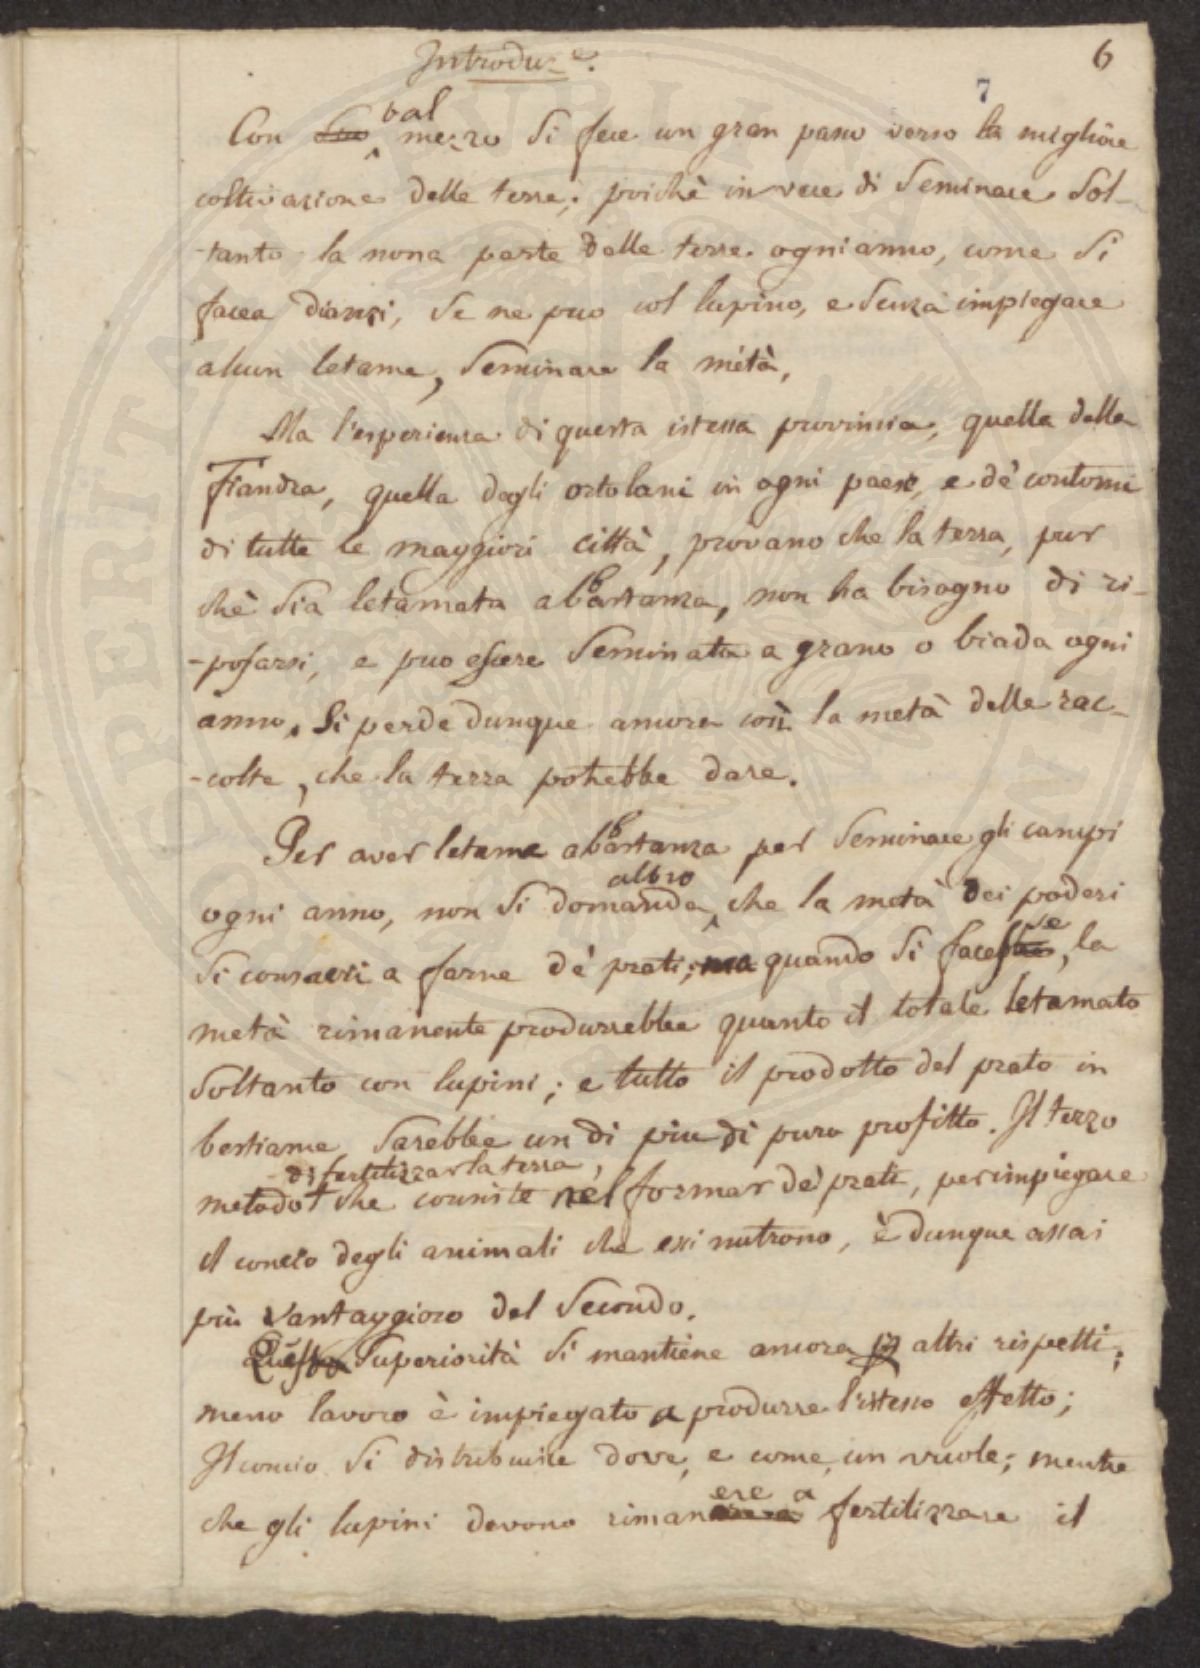 Introduz.e
6
7
Con tal mezzo si fece un gran passo verso la migliore
coltivazione delle terre; poichè in vece di seminare sol-
-tanto la nona parte delle terre ogni anno, come si
facea dianzi, se ne puo col lupino, e senza impiegare
alcun letame, seminare la metà,
Ma l'esperienza di questa istessa provincia, quella della
Fiandra, quella degli ortolani in ogni paese, e de' contorni
di tutte le maggiori città, provano che la terra, pur
chè sia letamata abbastanza, non ha bisogno di ri-
-posarsi, e puo essere seminata a grano o biada ogni
anno. Si perde dunque ancora così la metà delle rac-
-colte, che la terra potrebbe dare.
Per aver letame abbastanza per seminare gli campi
ogni anno, non si domanda altro che la metà dei poderi
si consacri a farne de' prati; ma quando si facesse, la
metà rimanente produrrebbe quanto il totale letamato
soltanto con lupini; e tutto il prodotto del prato in
bestiame sarebbe un di piu di puro profitto. Il terzo
metodo di fertilizzar la terra, che consiste nel formar de' prati, per impiegare
il concio degli animali che essi nutrono, è dunque assai
più vantaggioso del secondo.
Questa superiorità si mantiene ancora in altri rispetti;
meno lavoro è impiegato a produrre l'istesso effetto;
Il concio si distribuisce dove, e come, un vuole; mentre
che gli lupini devono rimanere a fertilizzare il